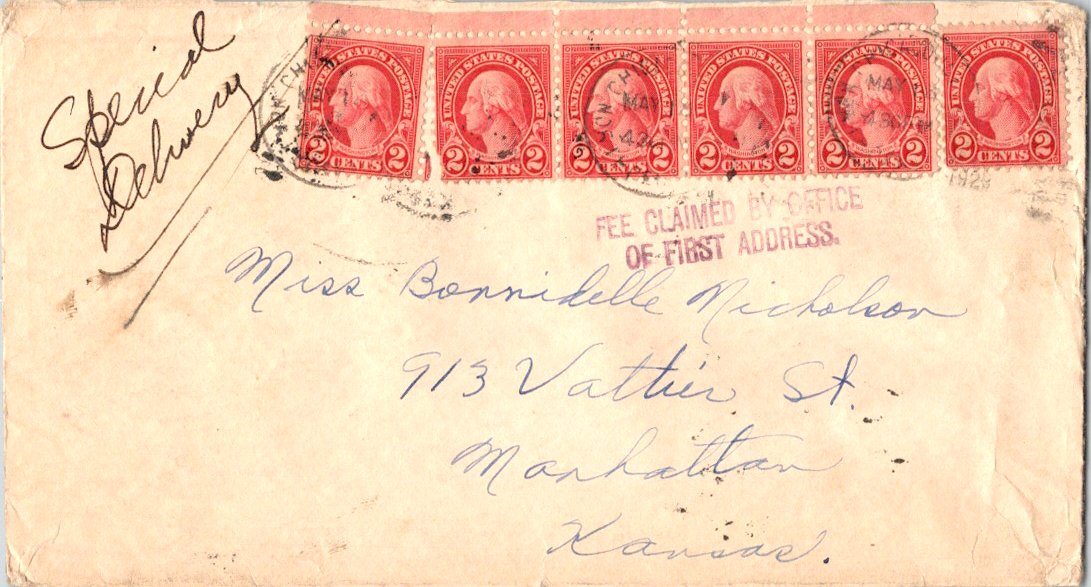 Special
Delivery
UNITED STATES POSTAGE
2 CENTS 2
UNITED STATES POSTAGE
2 CENTS 2
UNITED STATES POSTAGE
2 CENTS 2
UNITED STATES POSTAGE
2 CENTS 2
UNITED STATES POSTAGE
2 CENTS 2
UNITED STATES POSTAGE
2 CENTS 2
MAY
MAY
FEE CLAIMED BY OFFICE
OF FIRST ADDRESS.
Miss Bonnidelle Nicholson
913 Vattier St.
Manhattan
Kansas.